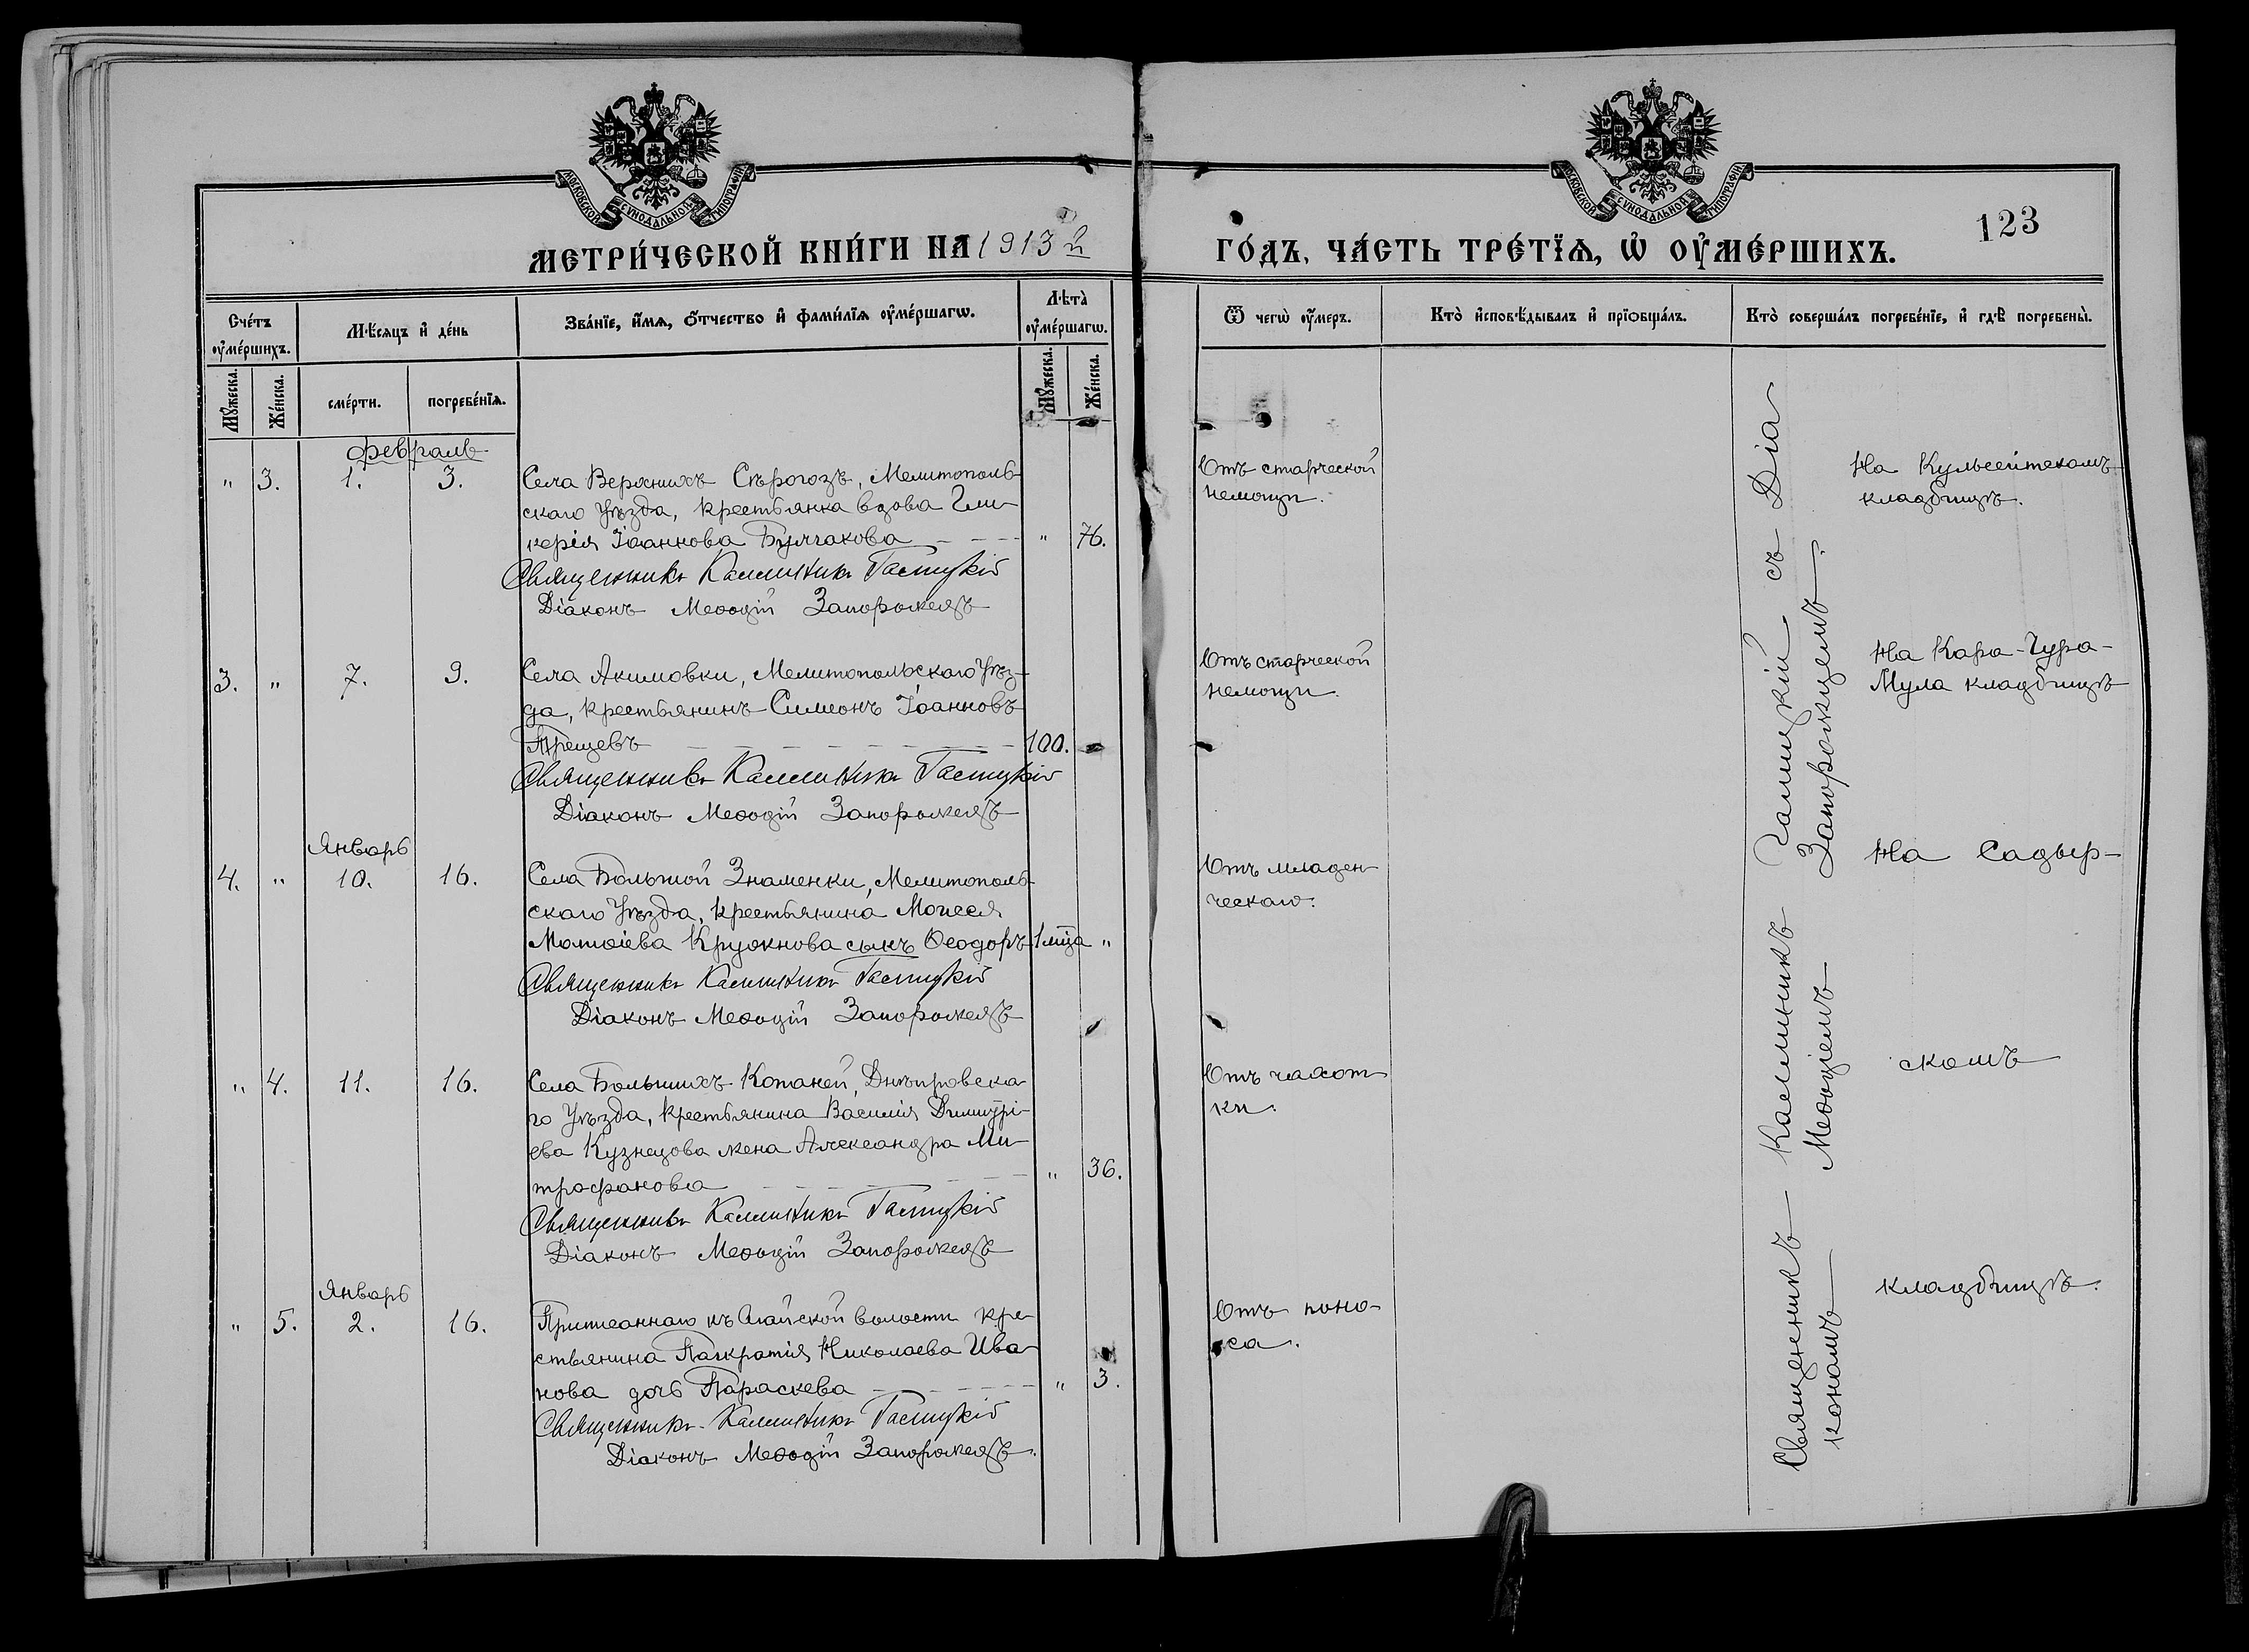 МОСКОВСКОЙ СѴНОДАЛЬНОЙ ТИПОГРАФІИ
МОСКОВСКОЙ СѴНОДАЛЬНОЙ ТИПОГРАФІИ
123
МЕТРИ́ЧЕСКОЙ КНИ́ГИ НА 1913 г.
ГО́ДЪ, ЧА́СТЬ ТРЕ́ТЇѦ, Ѡ҆ ОУ҆МЕ́РШИХЪ.
Сче́тъ оу҆ме́ршихъ.
Мѣ́сяцъ и҆ де́нь
Зва́нїе, и҆́мѧ, ѻ҆́тчество и҆ фами́лїѧ оу҆ме́ршагѡ.
Лѣ́та оу҆ме́ршагѡ.
Ѿ чегѡ̀ оу҆́меръ.
Кто̀ и҆сповѣ́дывалъ и҆ прїѻбща́лъ.
Кто̀ соверша́лъ погребе́нїе, и҆ гдѣ̀ погребены̀.
Мꙋ́жеска.
Же́нска.
сме́рти.
погребе́нїѧ.
Мꙋ́жеска.
Же́нска.
Февраль
" 3. 1. 3. Села Верхнихъ Сѣрогозъ, Мелитополь-
скаго уѣзда, крестьянка вдова Гли-
керія Іоаннова Булгакова " 76.
Священникъ Каллиникъ Гастицкій
Діаконъ Меѳодій Запорожецъ
Отъ старческой
немощи.
На
кладбищѣ.
3. " 7. 9. Села Акимовки, Мелитопольскаго уѣз-
да, крестьянинъ Симеонъ Іоанновъ
Трещевъ 100.
Священникъ Каллиникъ Гастицкій
Діаконъ Меѳодій Запорожецъ
Отъ старческой
немощи.
На Кара-Чура-
Мула кладбищѣ
Январь
4. " 10. 16. Села Большой Знаменки, Мелитополь-
скаго уѣзда, крестьянина Моисея
Матѳіева сынъ Ѳеодоръ 1 мца "
Священникъ Каллиникъ Гастицкій
Діаконъ Меѳодій Запорожецъ
Отъ младен-
ческаго.
На Садыр-
" 4. 11. 16. Села Большихъ Копаней, Днѣпровска-
го уѣзда, крестьянина Василія Димитрі-
ева Кузнецова жена Александра Ми-
трофанова " 36.
Священникъ Каллиникъ Гастицкій
Діаконъ Меѳодій Запорожецъ
Отъ чахот-
ки.
скомъ
Январь
" 5. 2. 16. Приписаннаго къ Агайской волости кре-
стьянина Панкратія Николаева Ива-
нова дочь Параскева " 3.
Священникъ Каллиникъ Гастицкій
Діаконъ Меѳодій Запорожецъ.
Отъ поно-
са.
кладбищѣ.
Священникъ Каллиникъ Гастицкій съ Діа-
кономъ Меѳодіемъ Запорожцемъ.